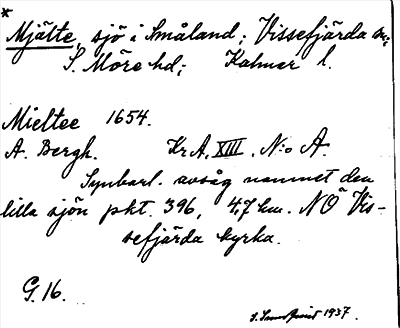 *
Mjälte, sjö i Småland; Vissefjärda sn;
S. Möre hd; Kalmar l.
Mieltee 1654.
A. Bergh. Kr A. XIII. N:o A.
Synbarl. avsåg namnet den
lilla sjön pkt. 396, 4,7 km. NÖ Vis-
sefjärda kyrka.
G. 16.
1937.